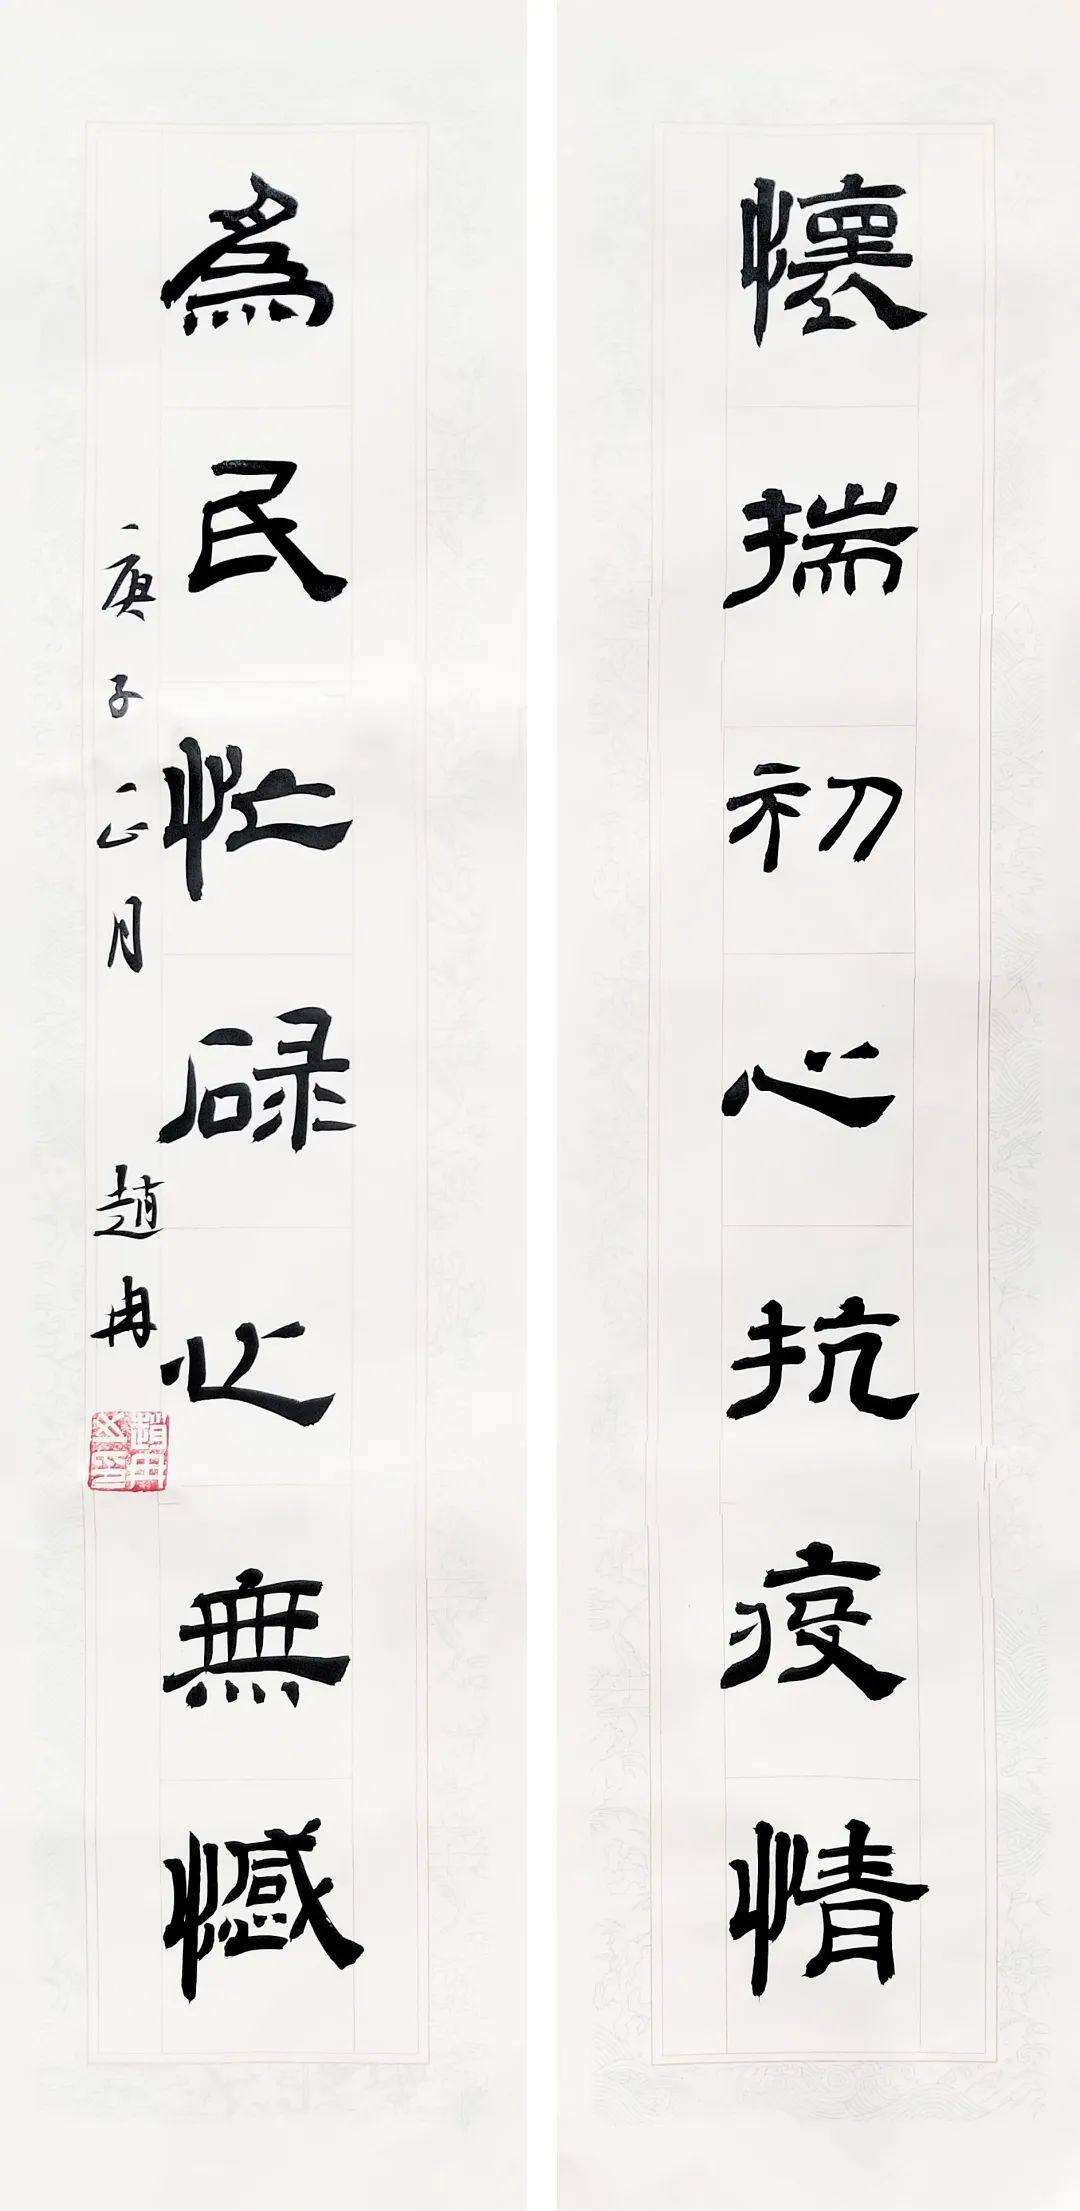 懷揣初心抗疫情
爲民忙碌心無憾
庚子正月 趙冉
趙冉之印